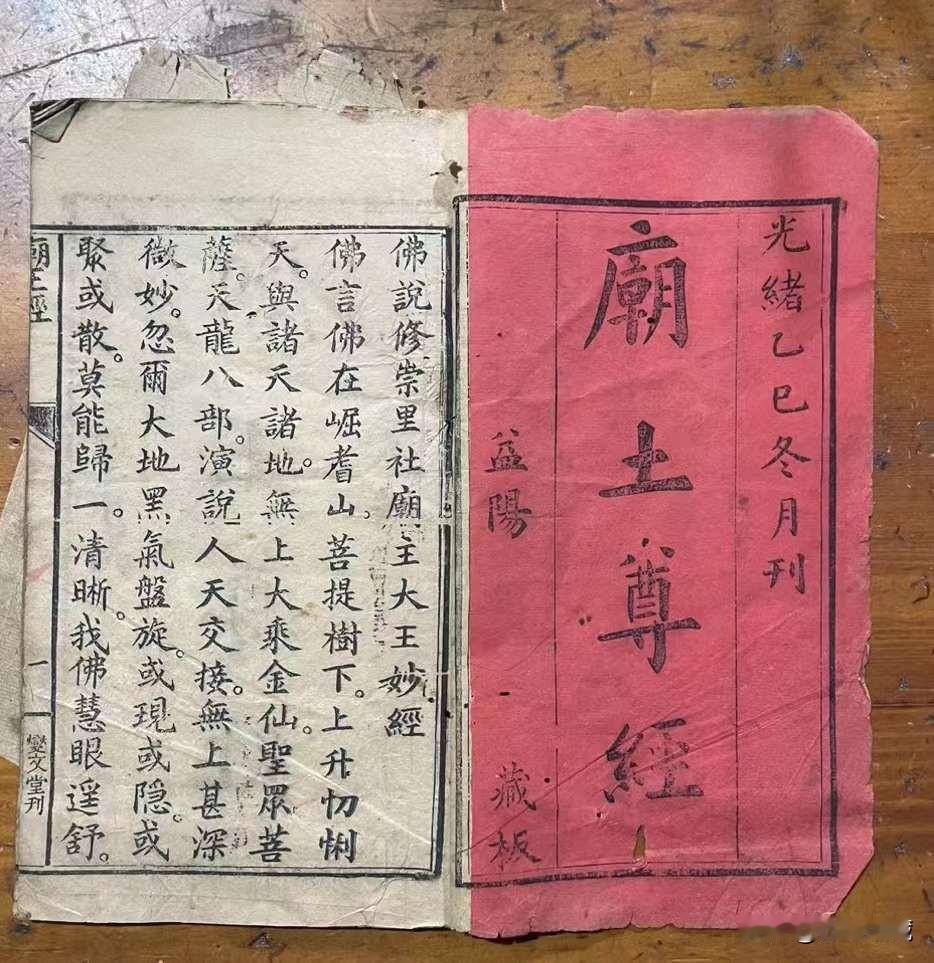 光緒乙巳冬月刊
廟主尊經
益陽
藏板
佛說修崇里社廟主大王妙經
佛言佛在崛耆山菩提樹下。上升忉悧
天。與諸天諸地。無上大乘金仙。聖眾菩
薩。天龍八部。演說人天交接。無上甚深
微妙。忽爾大地黑氣盤旋。或現或隱。或
聚或散。莫能歸一。清晰。我佛慧眼遥舒。
廟主經
一
燮文堂刊